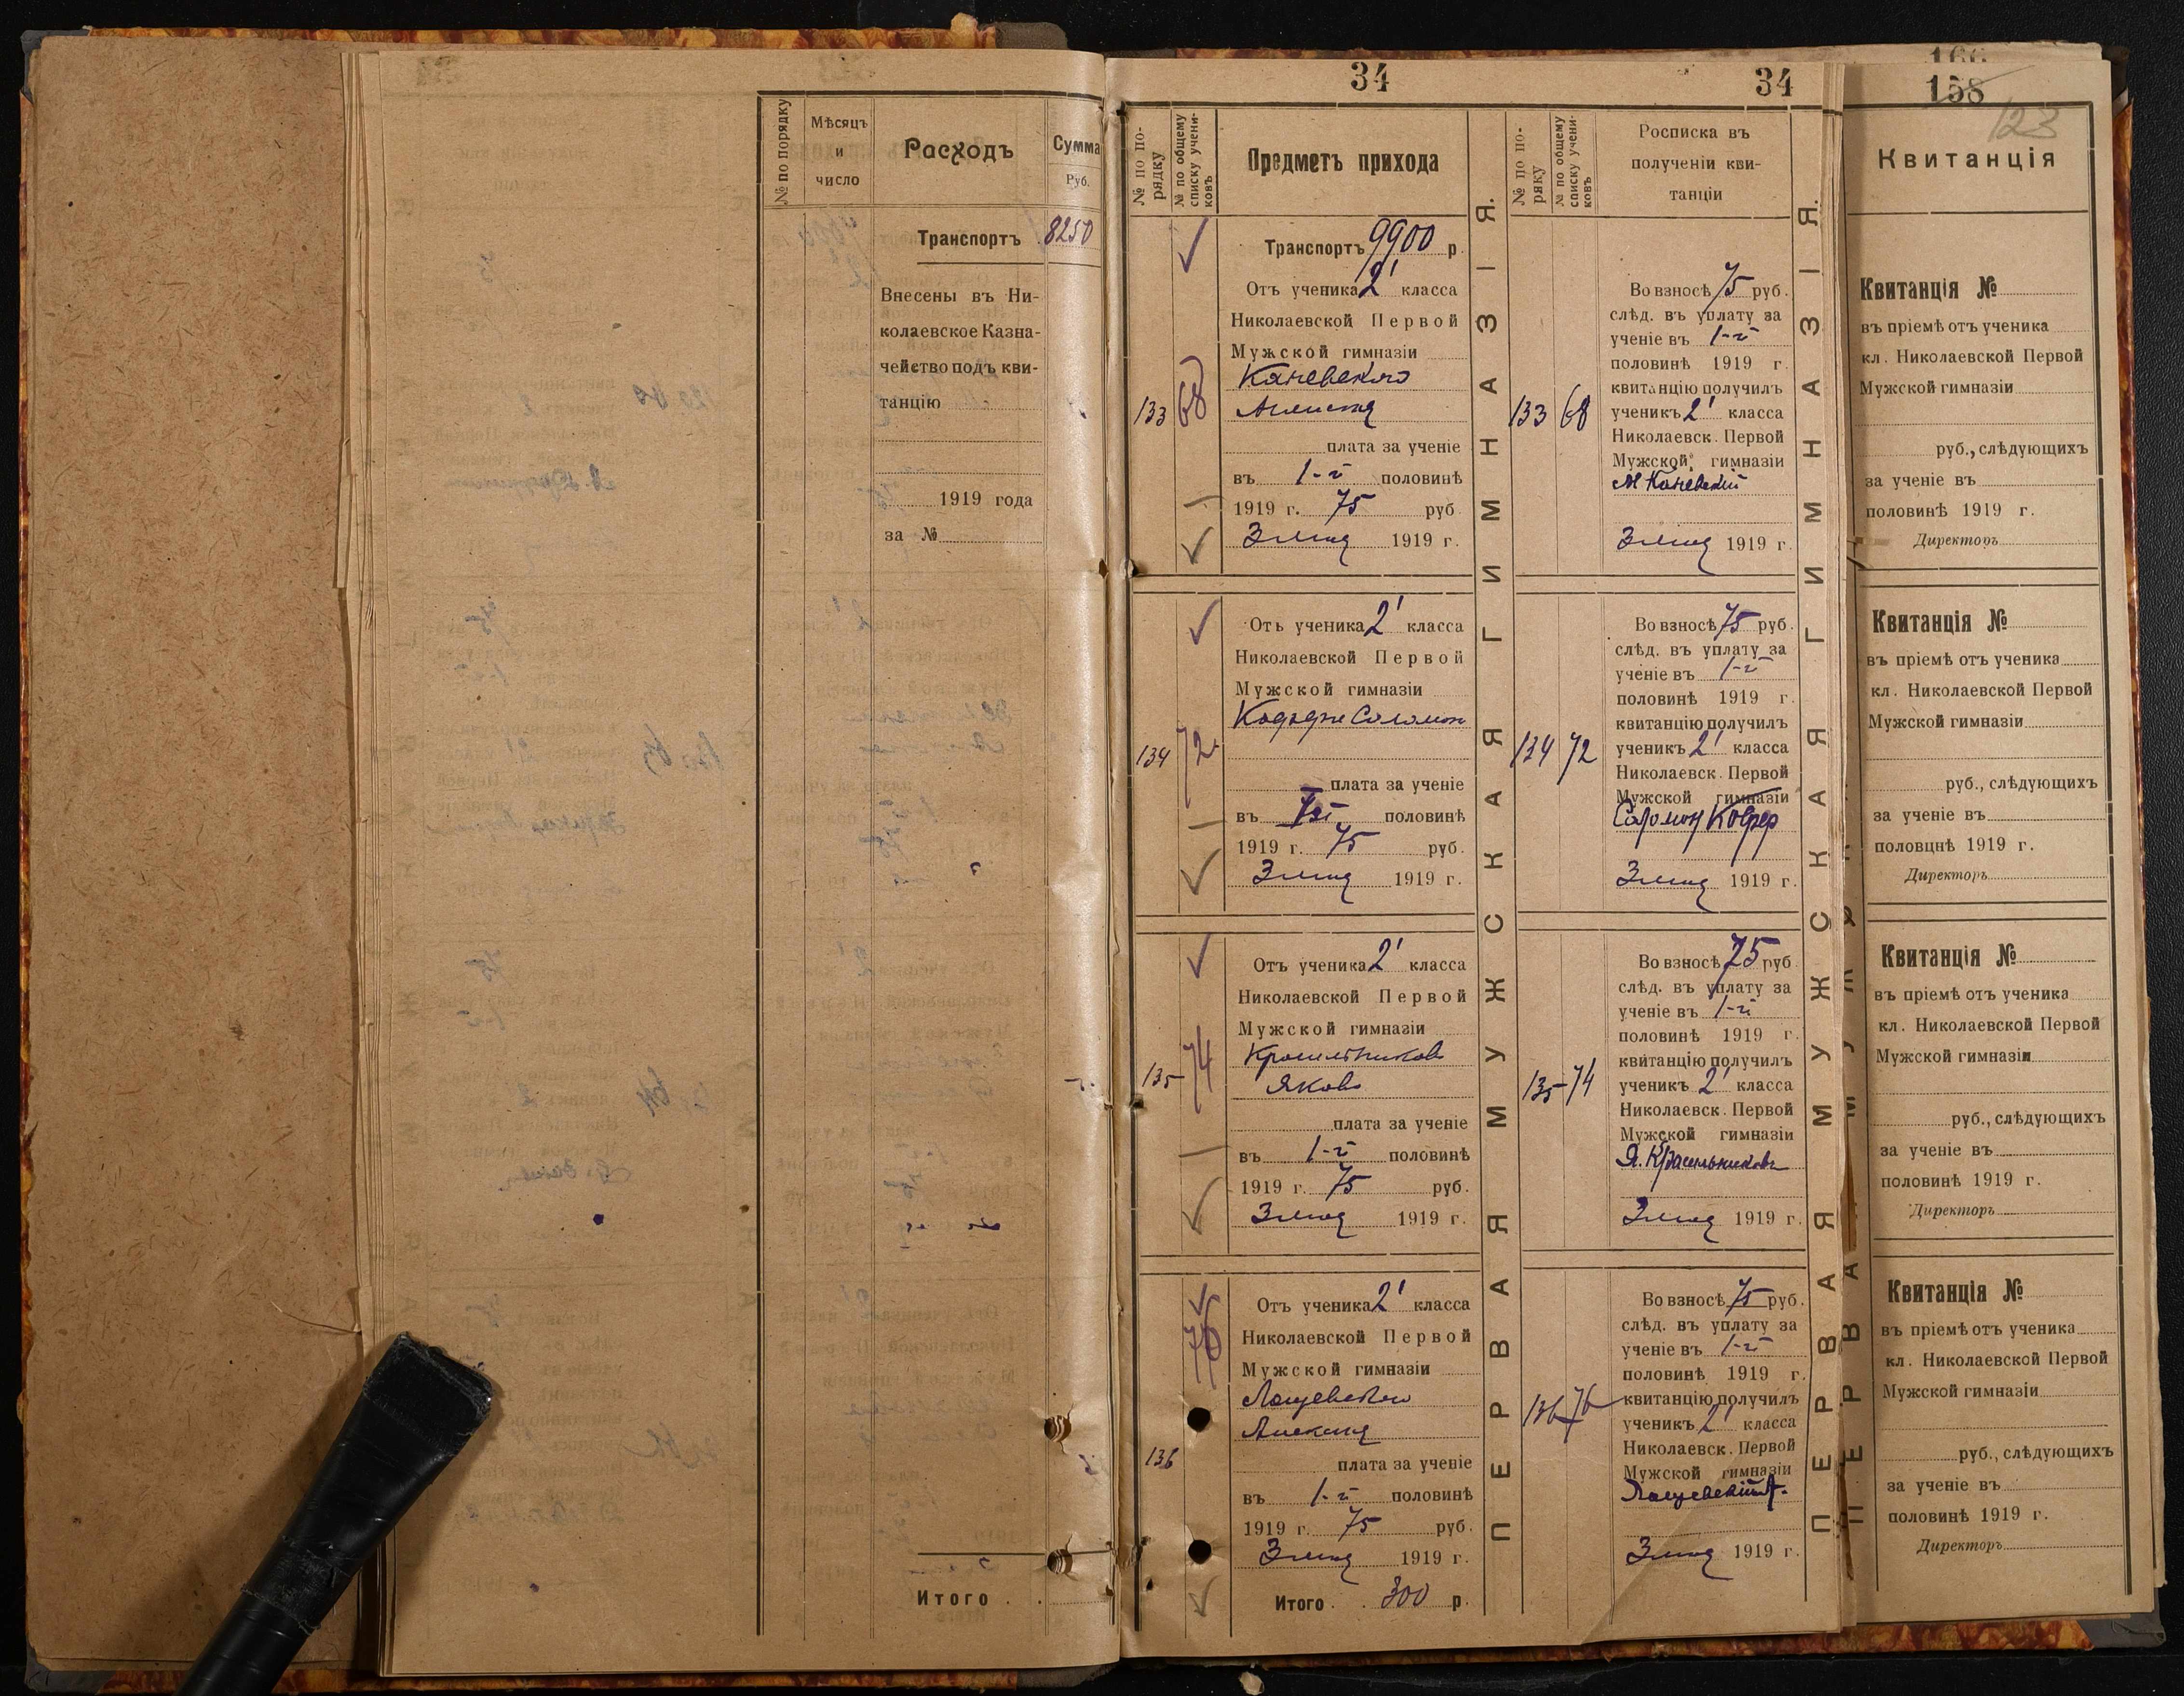 № по порядку
Мѣсяцъ
и
число
Расходъ
Сумма
Руб.
Транспортъ 8250
Внесены въ Ни-
колаевское Казна-
чейство подъ кви-
танцію
1919 года
за №
Итого . .
34
№ по по-
рядку
№ по общему
списку учени-
ковъ
Предметъ прихода
Транспортъ 9900 р
133
68
Отъ ученика 2' класса
Николаевской Первой
Мужской гимназіи
Каневского
плата за ученіе
въ 1-й половинѣ
1919 г. 75 руб
3 1919 г.
134
72
Отъ ученика 2' класса
Николаевской Первой
Мужской гимназіи
Соломон
плата за ученіе
въ половинѣ
1919 г. 75 руб.
3 1919 г.
135
74
Отъ ученика 2' класса
Николаевской Первой
Мужской гимназіи
Красильникова
Якова
плата за ученіе
въ 1-й половинѣ
1919 г. 75 руб.
3 1919 г.
136
76
Отъ ученика 2' класса
Николаевской Первой
Мужской гимназіи
плата за ученіе
въ 1-й половинѣ
1919 г. 75 руб.
3 1919 г.
Итого . . 300 р.
ПЕРВАЯ МУЖСКАЯ ГИМНАЗІЯ.
34
№ по по-
ряку
№ по общему
списку учени-
ковъ
Росписка въ
полученіи кви-
танціи
133
68
Во взносѣ 75 руб.
слѣд. въ уплату за
ученіе въ 1-й
половинѣ 1919 г.
квитанцію получилъ
ученикъ 2' класса
Николаевск. Первой
Мужской гимназіи
М Каневскій
3 1919 г.
134
72
Во взносѣ 75 руб.
слѣд. въ уплату за
ученіе въ 1-й
половинѣ 1919 г.
квитанцію получилъ
ученикъ 2' класса
Николаевск. Первой
Мужской гимназіи
Соломон
3 1919 г.
135
74
Во взносѣ 75 руб
слѣд. въ уплату за
ученіе въ 1-й
половинѣ 1919 г.
квитанцію получилъ
ученикъ 2' класса
Николаевск. Первой
Мужской гимназіи
Я. Красильниковъ
3 1919 г.
136
76
Во взносѣ 75 руб.
слѣд. въ уплату за
ученіе въ 1-й
половинѣ 1919 г.
квитанцію получилъ
ученикъ 2' класса
Николаевск. Первой
Мужской гимназіи
3 1919 г.
ПЕРВАЯ МУЖСКАЯ ГИМНАЗІЯ.
158
123
Квитанція
Квитанція №
въ пріемѣ отъ ученика
кл. Николаевской Первой
Мужской гимназіи
руб., слѣдующихъ
за ученіе въ
половинѣ 1919 г.
Директоръ
Квитанція №
въ пріемѣ отъ ученика
кл. Николаевской Первой
Мужской гимназіи
руб., слѣдующихъ
за ученіе въ
половцнѣ 1919 г.
Директоръ
Квитанція №
въ пріемѣ отъ ученика
кл. Николаевской Первой
Мужской гимназіи
руб., слѣдующихъ
за ученіе въ
половинѣ 1919 г.
Директоръ
Квитанція №
въ пріемѣ отъ ученика
кл. Николаевской Первой
Мужской гимназіи
руб., слѣдующихъ
за ученіе въ
половинѣ 1919 г.
Директоръ